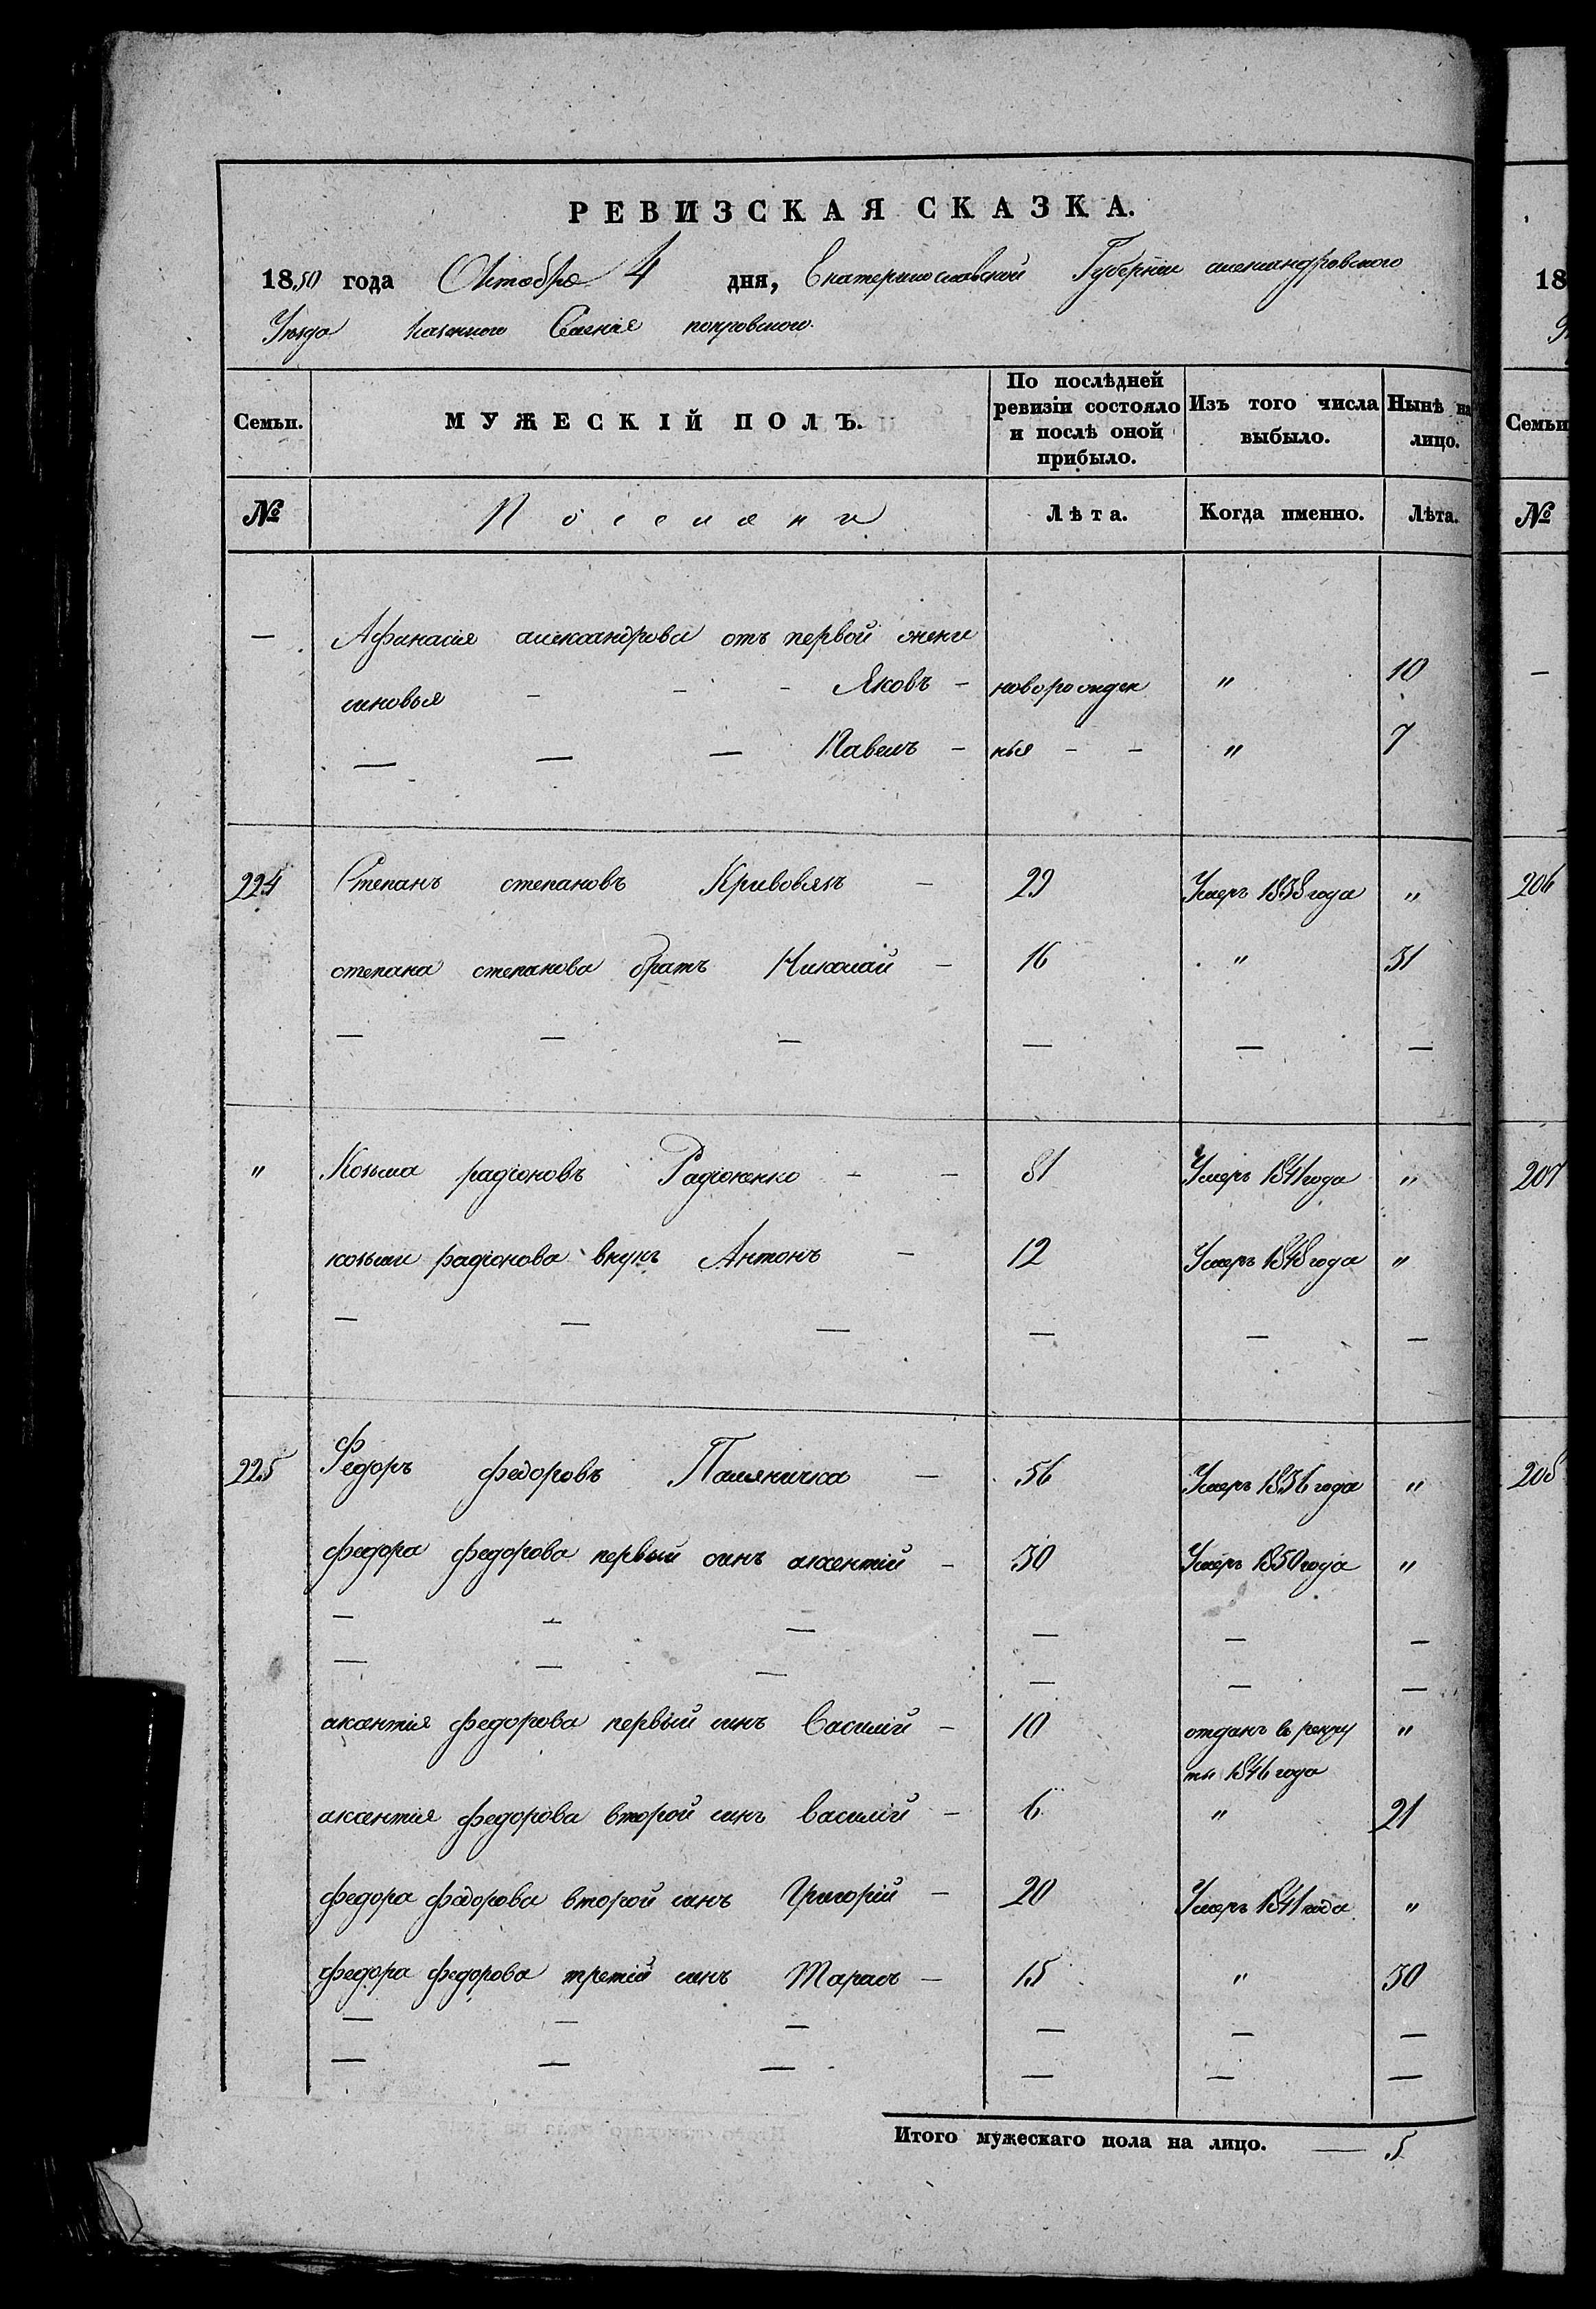 РЕВИЗСКАЯ СКАЗКА.
1850 года Октября 4 дня, Екатеринославской Губернии александровского
Уезда казенного Селения покровского.
Семьи. МУЖЕСКІЙ ПОЛЪ. По послѣдней ревизіи состояло и послѣ оной прибыло. Изъ того числа выбыло. Нынѣ на лицо.
№ Поселяни Лѣта. Когда именно. Лѣта.
— Афанасия александрова отъ первой жени
синовья - - - Яковъ - новорожден " 10
— — — Павелъ - ныя - - " 7
224 Степанъ степановъ Кривовязъ — 29 Умеръ 1838 года "
степана степанова братъ Николай — 16 " 31
— — — — — —
" Козьма радіоновъ Радіоненко - - 81 Умеръ 1841 года "
козьми радіонова внукъ Антонъ — 12 Умеръ 1848 года "
— — — — — —
225 Федоръ федоровъ Паляничка — 56 Умеръ 1836 года "
федора федорова первый синъ аксентій - 30 Умеръ 1850 года "
— — — — — —
— — — — — —
аксентія федорова первый синъ Василій - 10 отданъ в рекру "
ты 1846 года
аксентія федорова второй синъ Василій - 6 " 21
федора федорова второй синъ Григорій - 20 Умеръ 1841 года "
федора федорова третій синъ Тарасъ - 15 " 30
— — — — — —
— — — — — —
Итого мужескаго пола на лицо. — 5
18
Семьи
№
—
206
207
208